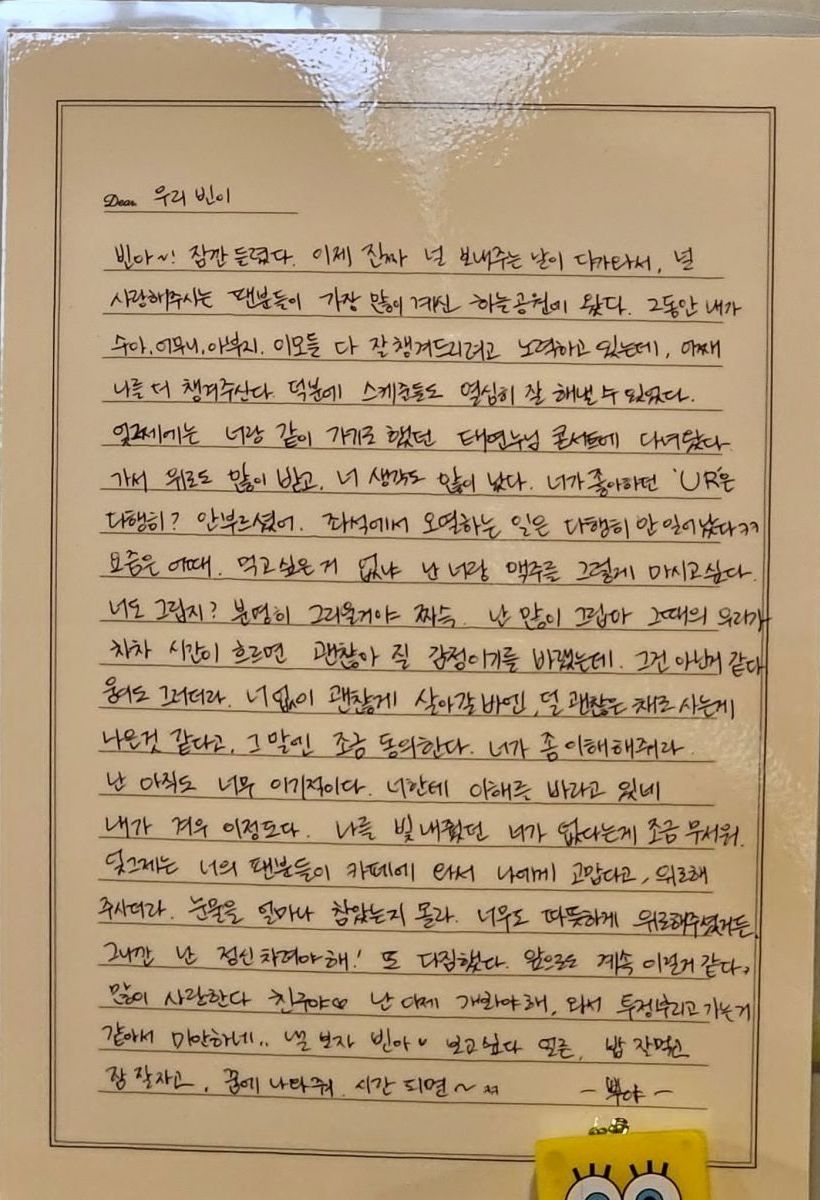 Dear. 우리 빈이
빈아~! 잠깐 들렸다. 이제 진짜 널 보내주는 날이 다가와서, 널
사랑해주시는 팬분들이 가장 많이 계신 하늘공원에 왔다. 그동안 내가
수아, 어무니, 아부지, 이모들 다 잘 챙겨드리려고 노력하고 있는데, 어째
나를 더 챙겨주신다. 덕분에 스케줄들도 열심히 잘 해낼 수 있었다.
엊그제에는 너랑 같이 가기로 했던 태연누님 콘서트에 다녀왔다.
가서 위로도 많이 받고, 너 생각도 많이 났다. 너가 좋아하던 'UR'은
다행히? 안부르셨어. 좌석에서 오열하는 일은 다행히 안 일어났다ㅋㅋ
요즘은 어때. 먹고싶은거 없냐 난 너랑 맥주를 그렇게 마시고싶다.
너도 그립지? 분명히 그리울거야 짜슥. 난 많이 그립다 그때의 우리가
차차 시간이 흐르면 괜찮아 질 감정이기를 바랬는데. 그건 아닌거 같다
뭐도 그러더라. 너 없이 괜찮게 살아갈 바엔, 덜 괜찮은 채로 사는게
나은것 같다고, 그 말엔 조금 동의한다. 너가 좀 이해해줘라.
난 아직도 너무 이기적이다. 너한테 이해를 바라고 있네
내가 겨우 이정도다. 나를 빛내줬던 너가 없다는게 조금 무서워.
엊그제는 너의 팬분들이 카페에 와서 나에게 고맙다고, 위로해
주시더라. 눈물을 얼마나 참았는지 몰라. 너무도 따뜻하게 위로해주셨거든.
그니깐 난 정신차려야해! 또 다짐했다. 앞으로도 계속 이럴거 같다.
많이 사랑한다 친구야∞ 난 이제 개화야해, 와서 투정부리고 가는거
같아서 미안하네.. 낼 보자 빈아♥ 보고싶다 얼른, 밥 잘먹고
잠 잘자고, 꿈에 나타나줘. 시간 되면~ ^^ - 뿌야 -